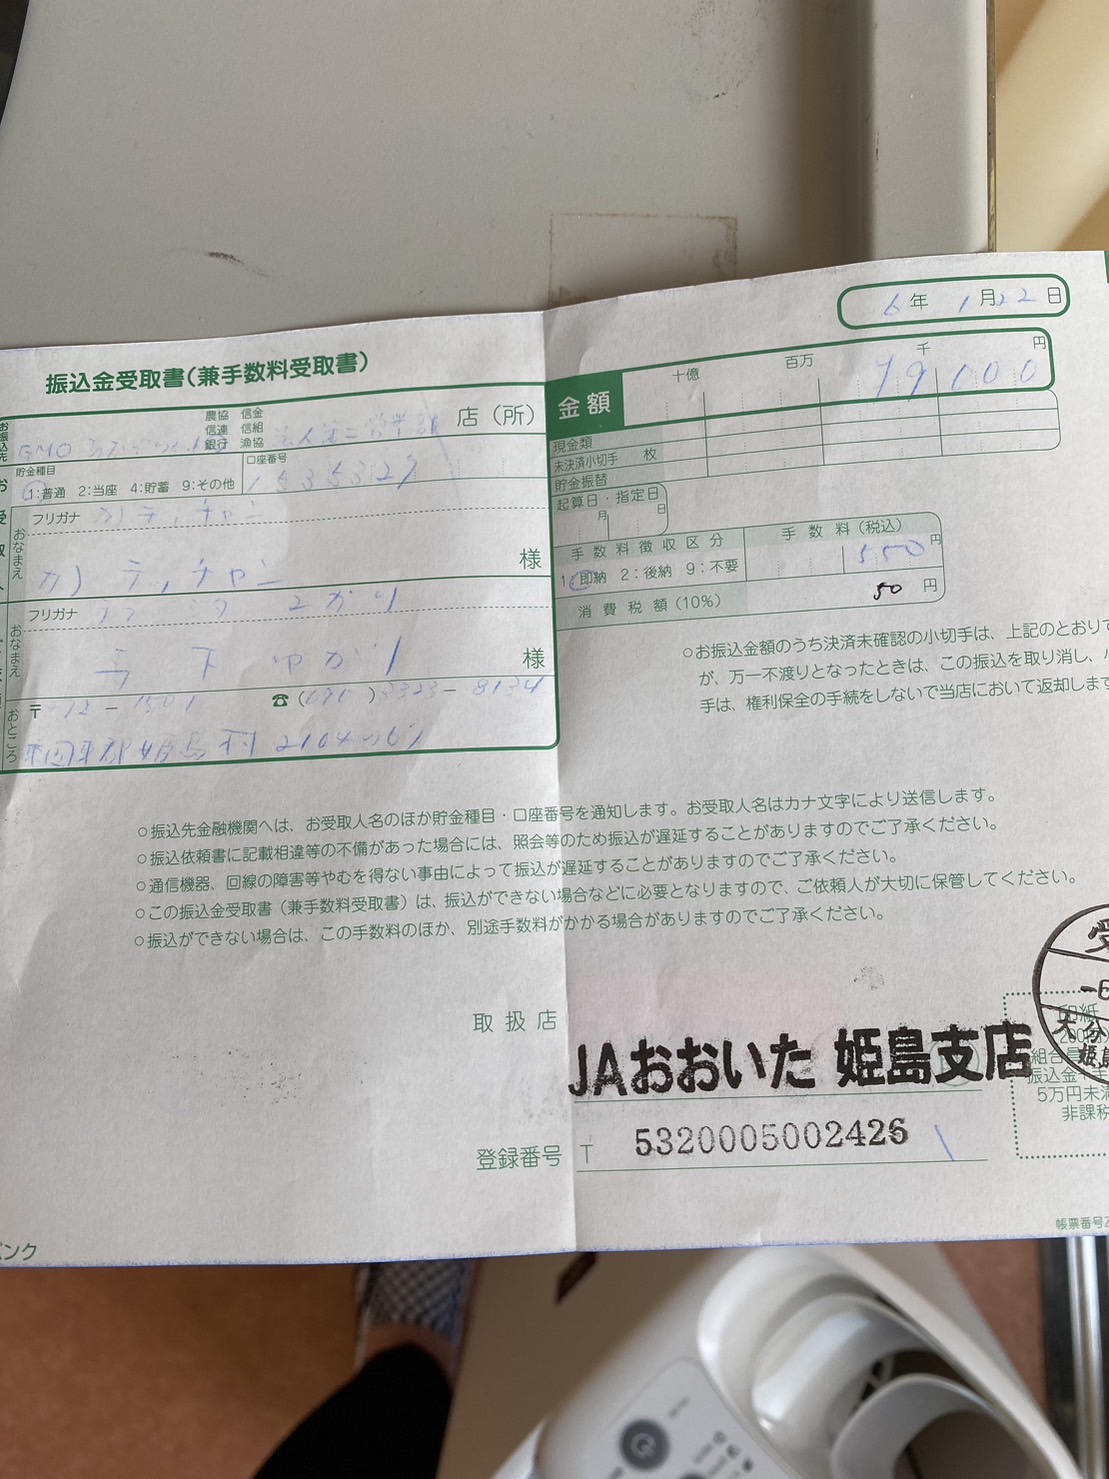 6年 1月22日
振込金受取書(兼手数料受取書)
お振込先
農協 信金
信連 信組
銀行 漁協
店(所)
GMO
貯金種目
1:普通 2:当座 4:貯蓄 9:その他
口座番号
1535329
フリガナ
カ)ラ,チャン
おなまえ
カ)ラ,チャン
様
フリガナ
おなまえ
ゆかり
様
おところ
〒
☎(090)3323-8134
金額
十億 百万 千 円
79000
現金類
未決済小切手 枚
貯金振替
起算日・指定日
月 日
手数料徴収区分
手数料(税込)
1:即納 2:後納 9:不要
550円
消費税額(10%)
50円
○お振込金額のうち決済未確認の小切手は、上記のとおりで
が、万一不渡りとなったときは、この振込を取り消し、
手は、権利保全の手続をしないで当店において返却します
○振込先金融機関へは、お受取人名のほか貯金種目・口座番号を通知します。お受取人名はカナ文字により送信します。
○振込依頼書に記載相違等の不備があった場合には、照会等のため振込が遅延することがありますのでご了承ください。
○通信機器、回線の障害等やむを得ない事由によって振込が遅延することがありますのでご了承ください。
○この振込金受取書(兼手数料受取書)は、振込ができない場合などに必要となりますので、ご依頼人が大切に保管してください。
○振込ができない場合は、この手数料のほか、別途手数料がかかる場合がありますのでご了承ください。
取扱店
JAおおいた 姫島支店
登録番号 T 5320005002426
受
大分
姫島
印紙
組合員
振込金
5万円未満
非課税
帳票番号2
バンク